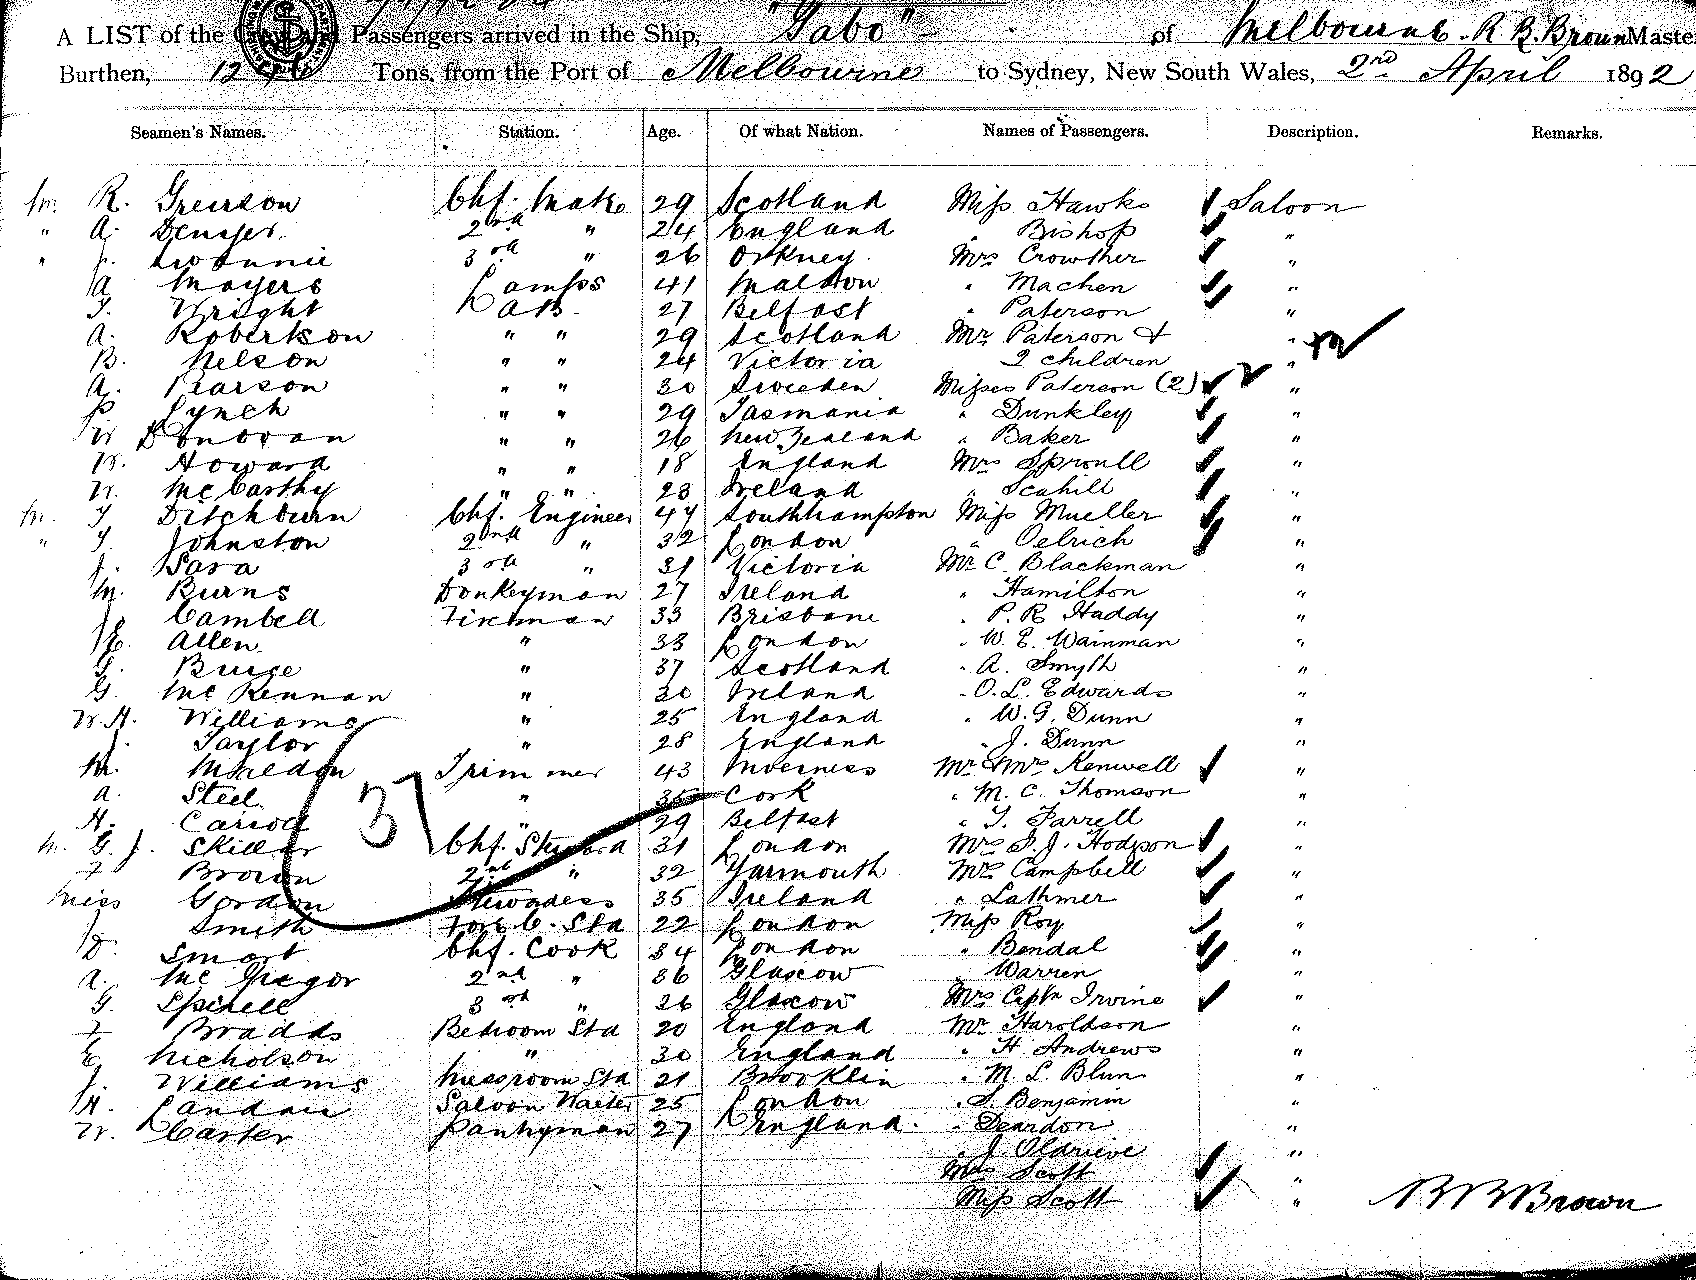 A LIST of the Crew and Passengers arrived in the Ship, "Gabo" of Melbourne. R B. Brown Maste
Burthen, Tons, from the Port of Melbourne to Sydney, New South Wales, 2nd April 1892
Seamen's Names. Station. Age. Of what Nation. Names of Passengers. Description. Remarks.
R. Greirson Chf. Mate 29 Scotland Miss Hawks Saloon
A. 2nd " 24 England " Bishop "
3rd " 26 Orkney. Mrs Crowther "
A Mayers Lamps 41 Maldon " Machen "
T. Wright A B. 27 Belfast " Paterson "
A. Robertson " " 29 Scotland Mr Paterson & "
B. Nelson " " 24 Victoria 2 children "
A. Pearson " " 30 Sweden Misses Paterson (2) 2 "
P Lynch " " 29 Tasmania " Dunkley "
W Donovan " " 26 New Zealand " Baker "
W. Howard " " 18 England Mrs Sproull "
W. McCarthy " " 23 Ireland " Scahill "
T Ditchburn Chf. Engineer 44 Southhampton Miss Mueller "
T. Johnston 2nd " 32 London " Oelrich "
J. Sara 3rd " 31 Victoria Mr C. Blackman "
M. Burns Donkeyman 27 Ireland " Hamilton "
J Cambell Fireman 33 Brisbane " P. R Haddy "
E. Allen. " 33 London " W. E. Wainman "
G. Bruce " 37 Scotland " A. Smyth "
G. McKennan " 30 Ireland " O. L. Edwards "
W. H. Williams " 25 England " W. G. Dunn "
J. Taylor " 28 England " J. Dunn "
M. Maldon Trimmer 43 Inverness Mr & Mrs Kenwell "
A. Steel. " 35 Cork " M. C. Thomson "
H. Carroll " 29 Belfast " T. Farrell "
37
G. J. Skillar Chf. Steward 31 London Mrs S. J. Hodgson "
F Brown 2nd " 32 Yarmouth Mrs Campbell "
Miss Gordon Stewadess 35 Ireland " Lathmer "
J Smith Fore C. Std 22 London Miss Roy "
D. Smart Chf. Cook 34 London " Bendal "
A. McGregor 2nd " 36 Glascow " Warren "
G. Spinell 3rd " 26 Glascow Mrs Captn Irvine "
F Bradds Bedroom Std 20 England Mr Haroldson "
E Nicholson " 30 England " H Andrews "
J. Williams Messroom Std 21 Brooklin " M. L. Blun "
H. Landau Saloon Waiter 25 London " S. Benjamin "
W. Carter Pantryman 27 England. " Deardon "
" J Oldrieve "
Mrs Scott "
Miss Scott " R B Brown